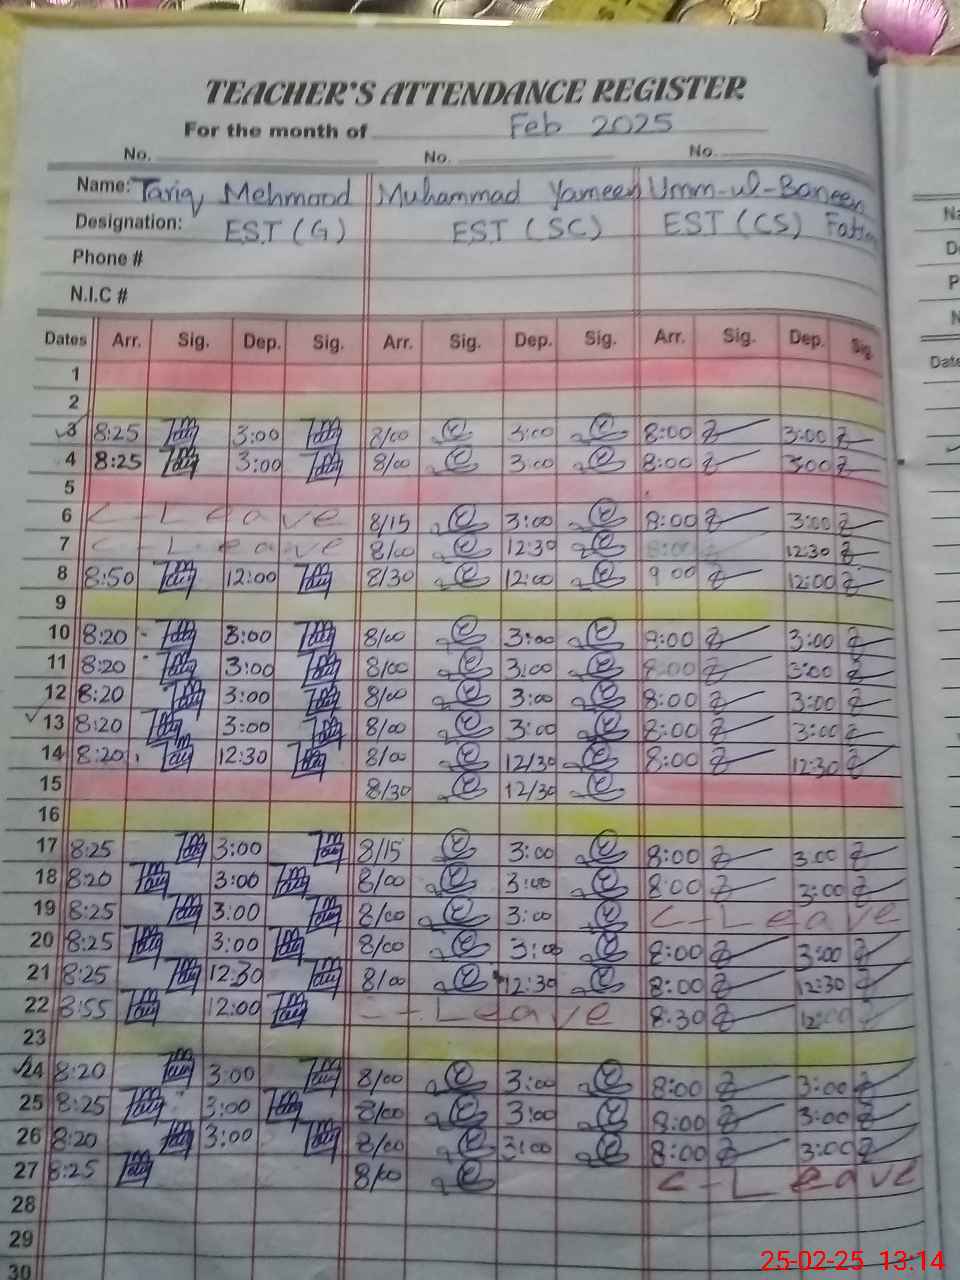 TEACHER'S ATTENDANCE REGISTER
For the month of Feb 2025
No. No. No.
Name: Tariq Mehmood Muhammad Yameen Umm-ul-Baneen
Designation: EST (G) EST (SC) EST (CS)
Phone #
N.I.C #
Dates Arr. Sig. Dep. Sig. Arr. Sig. Dep. Sig. Arr. Sig. Dep. Sig.
1
2
3 8:25 3:00 8/00 3:00 8:00 3:00
4 8:25 3:00 8/00 3:00 8:00 3:00
5
6 C-Leave 8/15 3:00 8:00 3:00
7 C-Leave 8/00 12:30 8:00 12:30
8 8:50 12:00 8/30 12:00 9 00 12:00
9
10 8:20 3:00 8/00 3:00 8:00 3:00
11 8:20 3:00 8/00 3:00 8:00 3:00
12 8:20 3:00 8/00 3:00 8:00 3:00
13 8:20 3:00 8/00 3:00 8:00 3:00
14 8:20 12:30 8/00 12/30 8:00 12:30
15 8/30 12/30
16
17 8:25 3:00 8/15 3:00 8:00 3:00
18 8:20 3:00 8/00 3:00 8:00 3:00
19 8:25 3:00 8/00 3:00 C-Leave
20 8:25 3:00 8/00 3:00 8:00 3:00
21 8:25 12:30 8/00 12:30 8:00 12:30
22 8:55 12:00 C-Leave 8:30 12:00
23
24 8:20 3:00 8/00 3:00 8:00 3:00
25 8:25 3:00 8/00 3:00 8:00 3:00
26 8:20 3:00 8/00 3:00 8:00 3:00
27 8:25 8/00 C-Leave
28
29
30
25-02-25 13:14